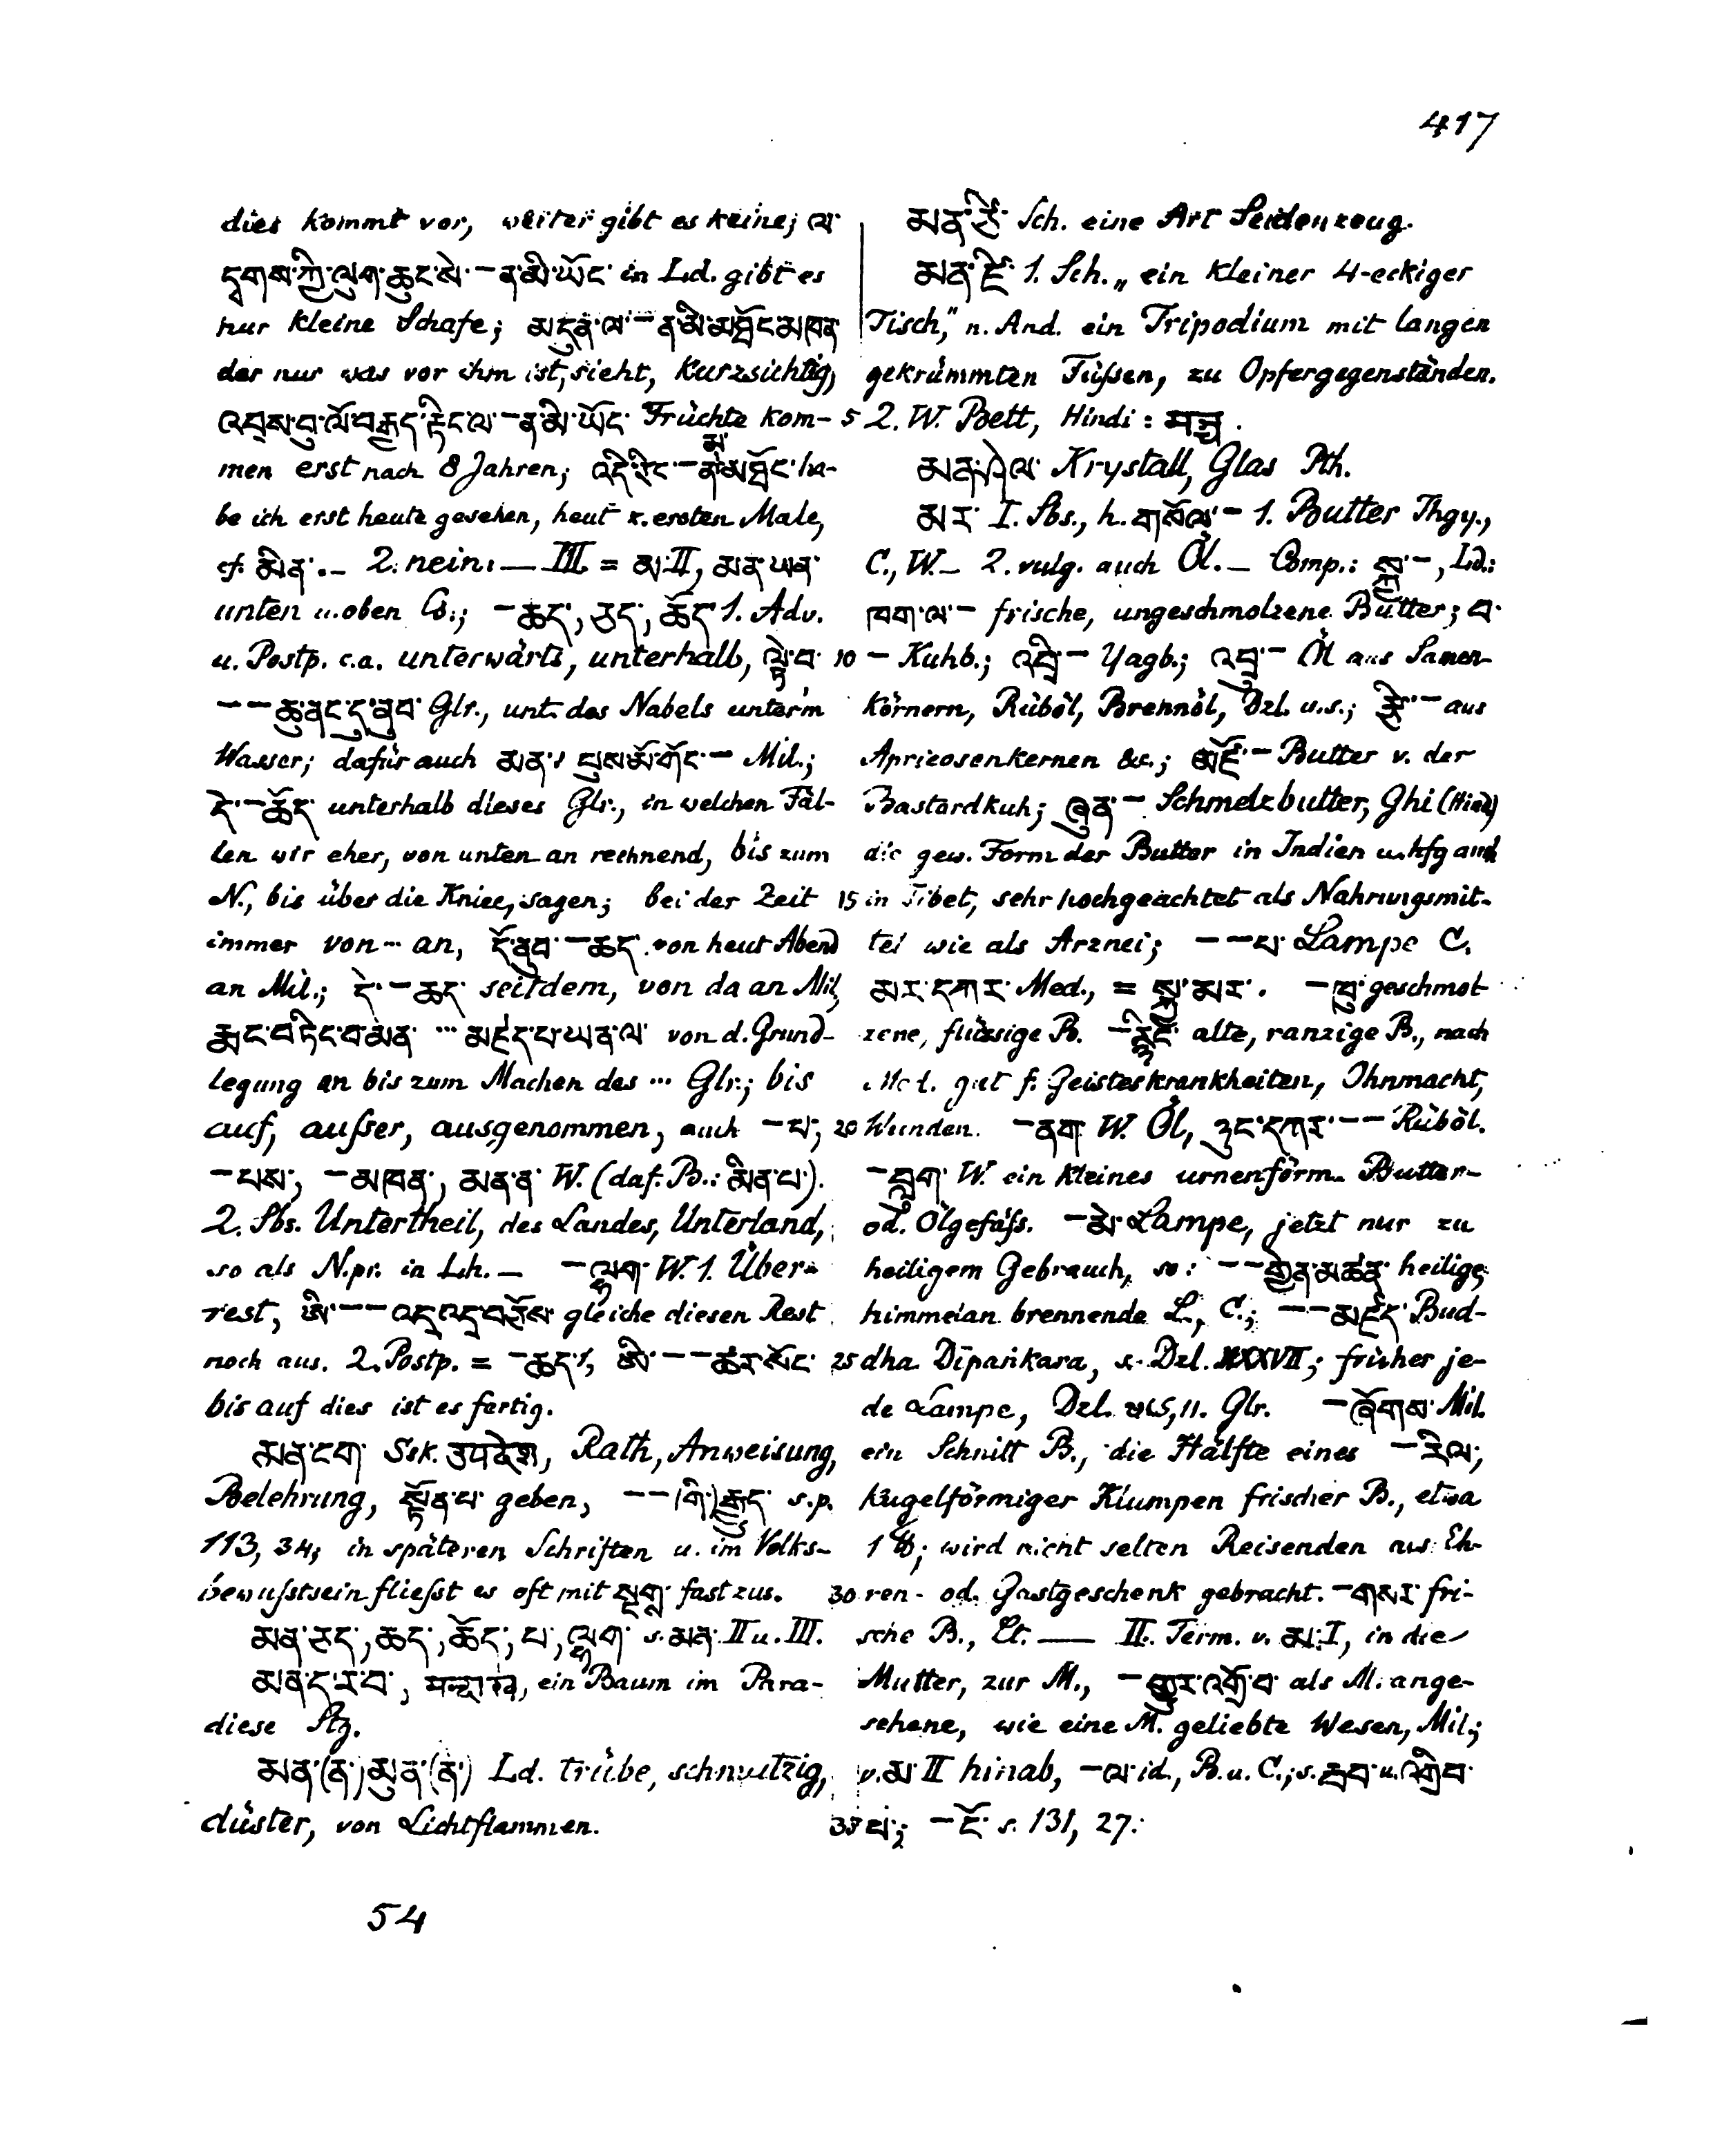 417
dies kommt vor, weiter gibt es keine; ལ་
དྭགས་ཀྱི་ལུག་ཆུང་སེ་ – ན་མི་ཡོང་ in Ld. gibt es
nur kleine Schafe; མདུན་ལ་ – ན་མི་མཐོང་མཁན་
der nur was vor ihm ist, sieht, kurzsichtig,
འབྲས་བུ་ལོ་བརྒྱད་རྟིང་ལ་ – ན་མི་ཡོང་ Früchte kom-
men erst nach 8 Jahren; འདི་རིང་ – ན་མ་མཐོང་ ha-
be ich erst heute gesehen, heut z. ersten Male,
cf. མིན་. – 2. nein. — III. = མ་ II, མན་ཡན་
unten u. oben Cs.; – ཆད་, ཅད་, ཆོད་ 1. Adv.
u. Postp. c.a. unterwärts, unterhalb, ལྟེ་བ་
– – ཆུ་ནང་དུ་ནུབ་ Glr., unt. des Nabels unter'm
Wasser; dafür auch མན་, པུས་མོ་གོང་ – Mil.;
དེ་ – ཆོད་ unterhalb dieses Glr., in welchen Fäl-
len wir eher, von unten an rechnend, bis zum
N., bis über die Kniee, sagen; bei der Zeit
immer von ... an, དོ་ནུབ་ – ཆད་ von heut Abend
an Mil.; དེ་ – ཆད་ seitdem, von da an Mil.
རྨང་བཏིང་བ་མན་ ... མཛད་པ་ཡན་ལ་ von d. Grund-
legung an bis zum Machen des ... Glr.; bis
auf, außer, ausgenommen, auch – པ་,
– པས་, – མཁན་, མན་ན་ W. (daf. B.: མིན་པ་).
2. Sbs. Untertheil, des Landes, Unterland,
so als N.pr. in Lh. – – ལྷག་ W. 1. Über-
rest, ཨི་ – – འདྲ་འདྲ་བཅོས་ gleiche diesen Rest
noch aus. 2. Postp. = – ཆད་ 1, ཨི་ – – ཚར་སོང་
bis auf dies ist es fertig.
མན་ངག་ Ssk. उपदेश, Rath, Anweisung,
Belehrung, སྟོན་པ་ geben, – – (གི་)རྒྱུད་ s.p.
113, 34; in späteren Schriften u. im Volks-
bewußtsein fließt es oft mit སྔགས་ fast zus.
མན་ཅད་, ཆད་, ཆོད་, པ་, ལྷག་ s. མན་ II u. III.
མན་ད་ར་བ་, मन्दारव, ein Baum im Para-
diese Stg.
མན་(ནེ་)མུན་(ནེ་) Ld. trübe, schmutzig,
düster, von Lichtflammen.
54
མན་ཙེ་ Sch. eine Art Seidenzeug.
མན་ཇི་ 1. Sch. „ein kleiner 4-eckiger
Tisch," n. And. ein Tripodium mit langen
gekrümmten Füßen, zu Opfergegenständen.
5 2. W. Bett, Hindi: मञ्च.
མན་ཤེལ་ Krystall, Glas Pth.
མར་ I. Sbs., h. གསོལ་ – 1. Butter Thgy.,
C., W. – 2. vulg. auch Öl. – Comp.: སྐྱ་ –, Ld.:
ཁག་ལ་ – frische, ungeschmolzene Butter; བ་
10 – Kuhb.; འབྲི་ – Yagb.; འབྲུ་ – Öl aus Samen-
körnern, Rüböl, Brennöl, Dzl. u.s.; རྩི་ – aus
Apricosenkernen &c.; མཛོ་ – Butter v. der
Bastardkuh; ཞུན་ – Schmelzbutter, Ghi (Hind)
die gew. Form der Butter in Indien u. hfg auch
15 in Tibet, sehr hochgeachtet als Nahrungsmit-
tel wie als Arznei; – – པ་ Lampe C.
མར་དཀར་ Med., = སྐྱ་མར་. – ཁུ་ geschmol-
zene, flüssige B. – རྙིང་ alte, ranzige B., nach
Med. gut f. Geisteskrankheiten, Ohnmacht,
20 Wunden. – ནག་ W. Öl, ཉུང་དཀར་ – – Rüböl.
– བླུག་ W. ein kleines urnenförm. Butter-
od. Ölgefäß. – མེ་ Lampe, jetzt nur zu
heiligem Gebrauch, so: – – གྱེན་མཚན་ heilige,
himmelan brennende L., C.; – – མཛད་ Bud-
25 dha Dīpaṅkara, s. Dzl. XXXVII; früher je-
de Lampe, Dzl. 25, 11. Glr. – ཞོགས་ Mil.
ein Schnitt B., die Hälfte eines – རིལ་,
kugelförmiger Klumpen frischer B., etwa
1 ℔; wird nicht selten Reisenden als Eh-
30 ren- od. Gastgeschenk gebracht. – གསར་ fri-
sche B., Lt. — II. Term. v. མ་ I, in die
Mutter, zur M., – གྱུར་འགྲོ་བ་ als M. ange-
sehene, wie eine M. geliebte Wesen, Mil.;
v. མ་ II hinab, – ལ་ id., B. u. C.; s. རྒྱབ་ u. འགྲིབ་
35 པ་; – ངོ་ s. 131, 27.